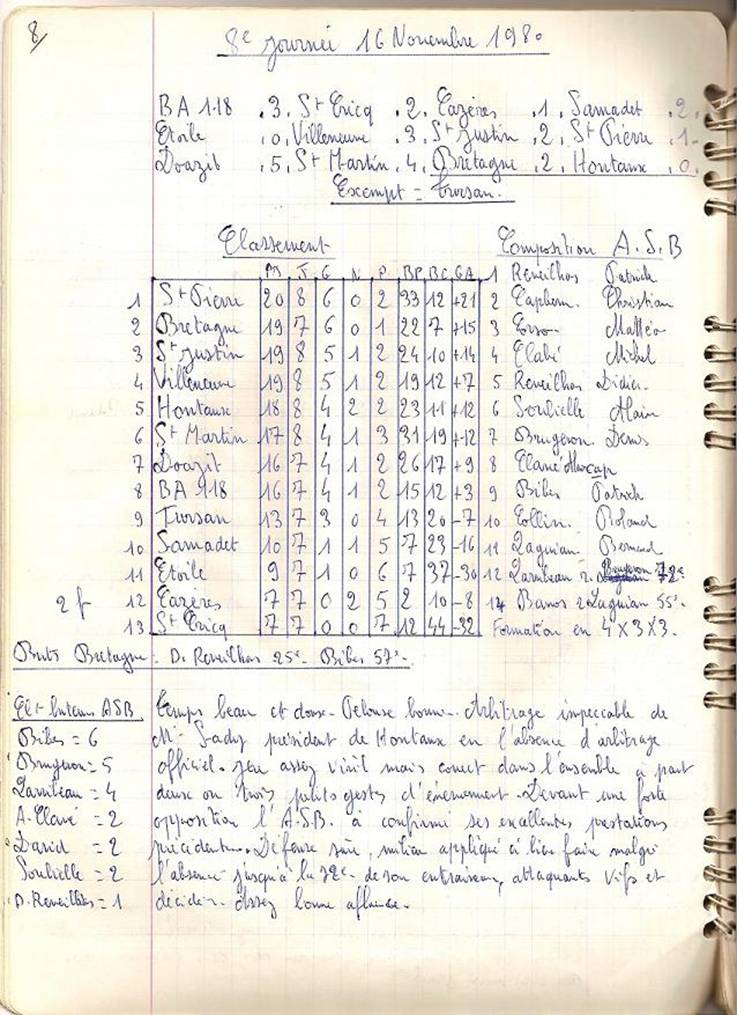 8/
8e journée 16 Novembre 1980
BA 118 .3. St Cricq .2. Cazères .1. Samadet .2.
Etoile .0. Villeneuve .3. St Justin .2. St Pierre .1.
Doazit .5. St Martin .4. Bretagne .2. Hontanx .0.
Exempt = Tursan.
Classement
Pts J G N P BP BC GA
1 St Pierre 20 8 6 0 2 33 12 +21
2 Bretagne 19 7 6 0 1 22 7 +15
3 St Justin 19 8 5 1 2 24 10 +14
4 Villeneuve 19 8 5 1 2 19 12 +7
5 Hontanx 18 8 4 2 2 23 11 +12
6 St Martin 17 8 4 1 3 31 19 +12
7 Doazit 16 7 4 1 2 26 17 +9
8 BA 118 16 7 4 1 2 15 12 +3
9 Tursan 13 7 3 0 4 13 20 -7
10 Samadet 10 7 1 1 5 7 23 -16
11 Etoile 9 7 1 0 6 7 37 -30
2 f 12 Cazères 7 7 0 2 5 2 10 -8
13 St Cricq 7 7 0 0 7 12 44 -32
Composition A.S.B
1 Reveilhos Patrick
2 Christian
3 Mattéo
4 Michel
5 Reveilhos Didier
6 Soulielle Alain
7 Brugeron Denis
8 Clavé cap
9 Bibes Patrick
10 Collin Roland
11 Laguian Bernard
12 Larribeau r. 72e
14 Banos r Laguian 55e.
Formation en 4 X 3 X 3.
Buts Bretagne : D. Reveilhos 25e. Bibes 57e.
Clt buteurs ASB
Bibes = 6
Brugeron = 5
Larribeau = 4
A. Clavé = 2
David = 2
Soulielle = 2
D. Reveilhos = 1
Temps beau et doux. Pelouse bonne. Arbitrage impeccable de
Mr président de Hontanx en l'absence d'arbitrage
officiel. Jeu assez viril mais correct dans l'ensemble à part
deux ou trois petits gestes d'énervement. Devant une forte
opposition l'A.S.B. à confirmé ses excellentes prestations
précédentes. Défense sûre, milieu appliqué à bien faire malgré
l'absence jusqu'à la 72e. de son entraineur, attaquants vifs et
décidés. Assez bonne affluence.